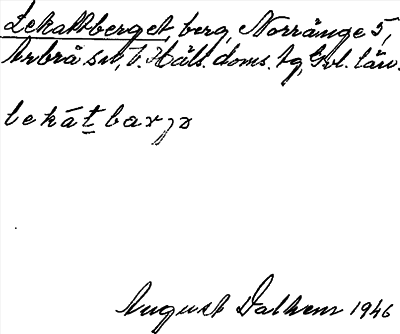 Lekattberget, berg, Norränge 5,
Arbrå sn, v. Häls. doms. tg, Gvl. län.
lekátbarjə
August Dalhem 1946